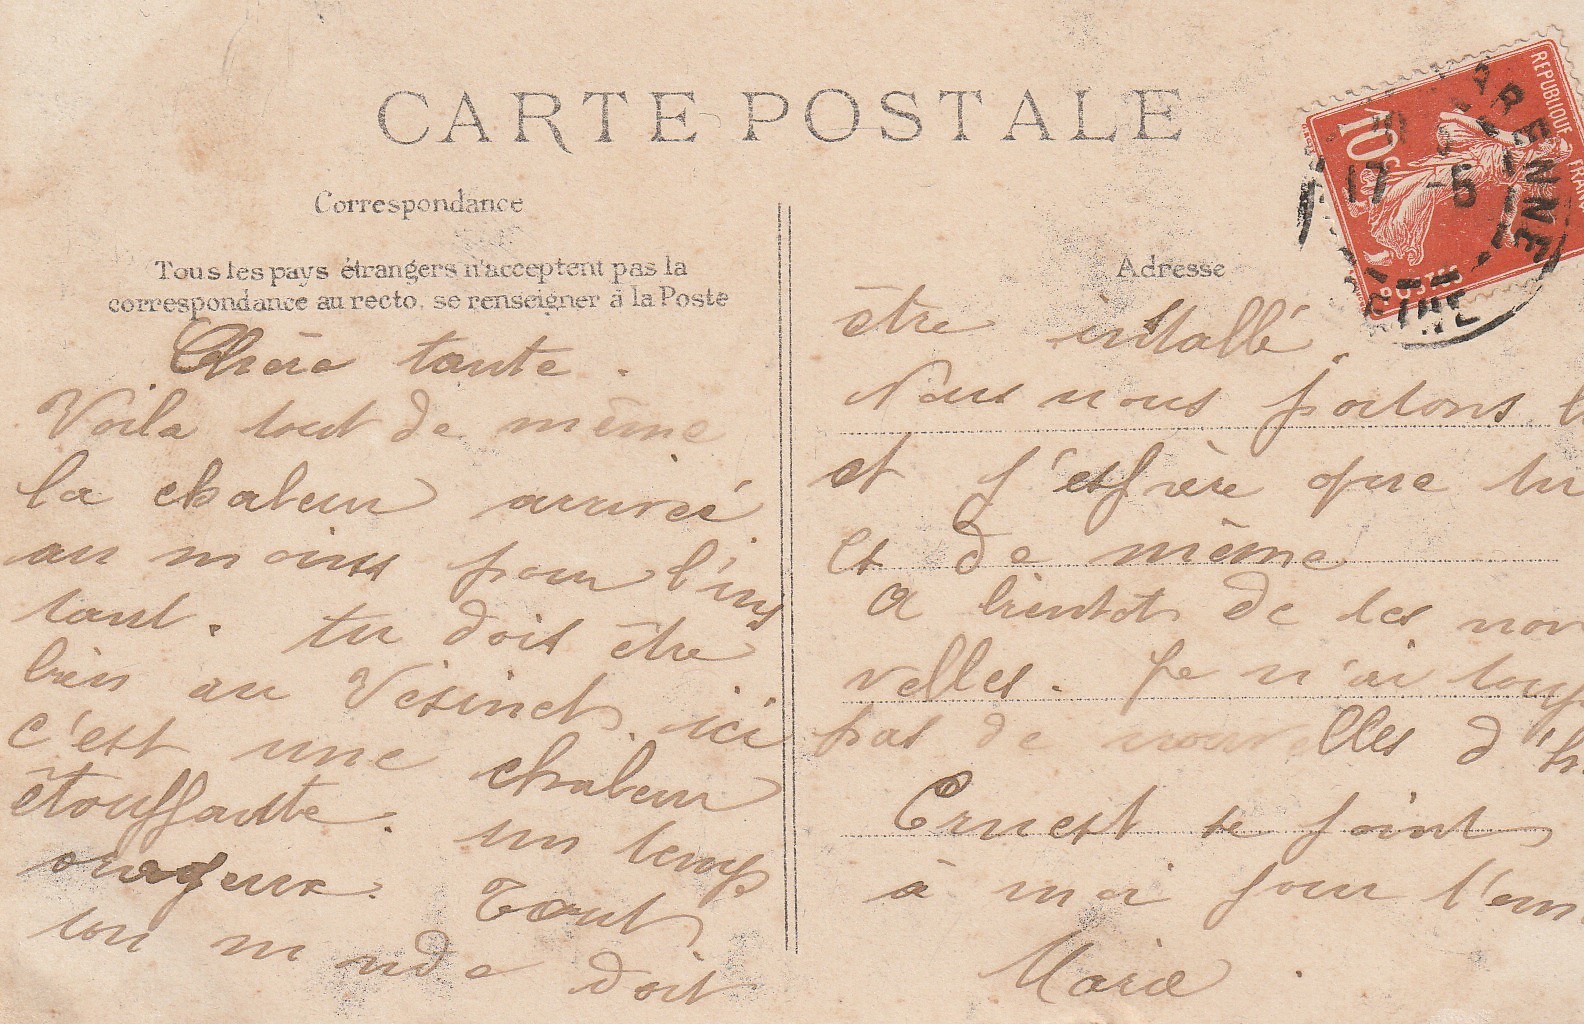 CARTE POSTALE
Correspondance
Tous les pays étrangers n'acceptent pas la
correspondance au recto, se renseigner à la Poste
Chère tante.
Voila tout de même
la chaleur arrivée
au moins pour l'ins
tant. tu dois être
bien au Vésinet. ici
c'est une chaleur
étouffante. un temps
orageux. Tout
ton monde doit
Adresse
être intallé.
Nous nous portons
et j'espère que tu
es de même
A bientôt de tes nou
velles. Je n'ai
pas de nouvelles
Ernest se joint
à moi pour t'em
Marie.
REPUBLIQUE
10c
17 -5